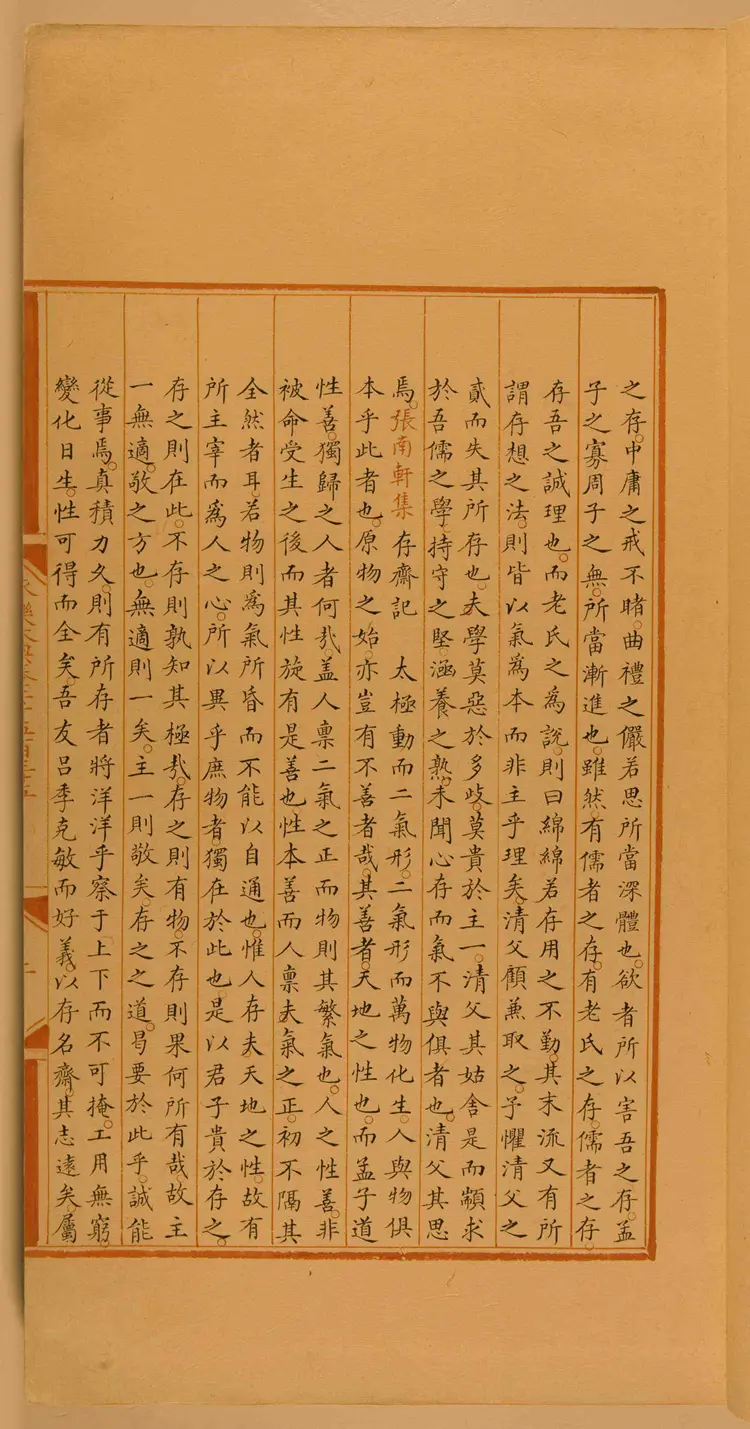 之存。中庸之戒不睹。曲禮之儼若思所當深體也。欲者所以害吾之存。孟
子之寡周子之無。所當漸進也。雖然。有儒者之存。有老氏之存。儒者之存。
存吾之誠理也。而老氏之為說。則曰綿綿若存用之不勤。其末流又有所
謂存想之法。則皆以氣為本而非主乎理矣。清父顧兼取之。予懼清父之
貳而失其所存也。夫學莫惡於多歧。莫貴於主一。清父其姑舍是而顓求
於吾儒之學。持守之堅。涵養之熟。未聞心存而氣不與俱者也。清父其思
焉。張南軒集 存齋記 太極動而二氣形。二氣形而萬物化生。人與物俱
本乎此者也。原物之始。亦豈有不善者哉。其善者。天地之性也。而孟子道
性善。獨歸之人者何哉。蓋人禀二氣之正而物則其繁氣也。人之性善。非
被命受生之後而其性旋有是善也。性本善而人禀夫氣之正。初不隔其
全然者耳。若物則為氣所昏而不能以自通也。惟人存夫天地之性。故有
所主宰而為人之心。所以異乎庶物者。獨在於此也。是以君子貴於存之。
存之則在此。不存則孰知其極哉。存之則有物。不存則果何所有哉故主
一無適。敬之方也。無適則一矣。主一則敬矣。存之之道。曷要於此乎。誠能
從事焉。真積力久。則有所存者將洋洋乎察于上下而不可掩。工用無窮。
變化日生。性可得而全矣。吾友呂季克敏而好義。以存名齋。其志遠矣。屬